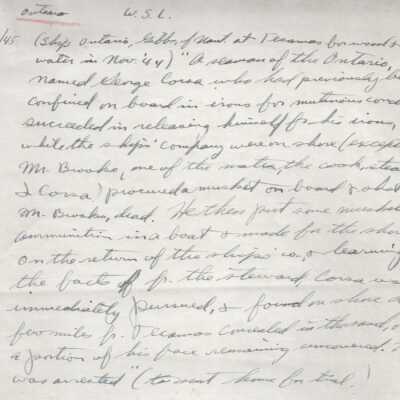 Ontario W.S.L.
/45 (Ship Ontario, Gibbs, of Nant at Tecamas for wood &
water in Nov. '44) "A seaman of the Ontario,
named George Corsa who had previously be
confined on board in irons for mutinous cond
succeeded in releasing himself fr. his irons,
while the ships' company were on shore (excep
Mr. Brooks, one of the mates, the cook, stea
& Corsa) procured a musket on board & shot
Mr. Brooks, dead. He then put some muskets
ammunition in a boat & made for the shor
On the return of the ships' co., & learning
the facts fr. the steward, Corsa was
immediately pursued, & found on shore a
few miles fr. Tecamas concealed in the sand, o
a portion of his face remaining uncovered.
was arrested" (to sent home for trial.)